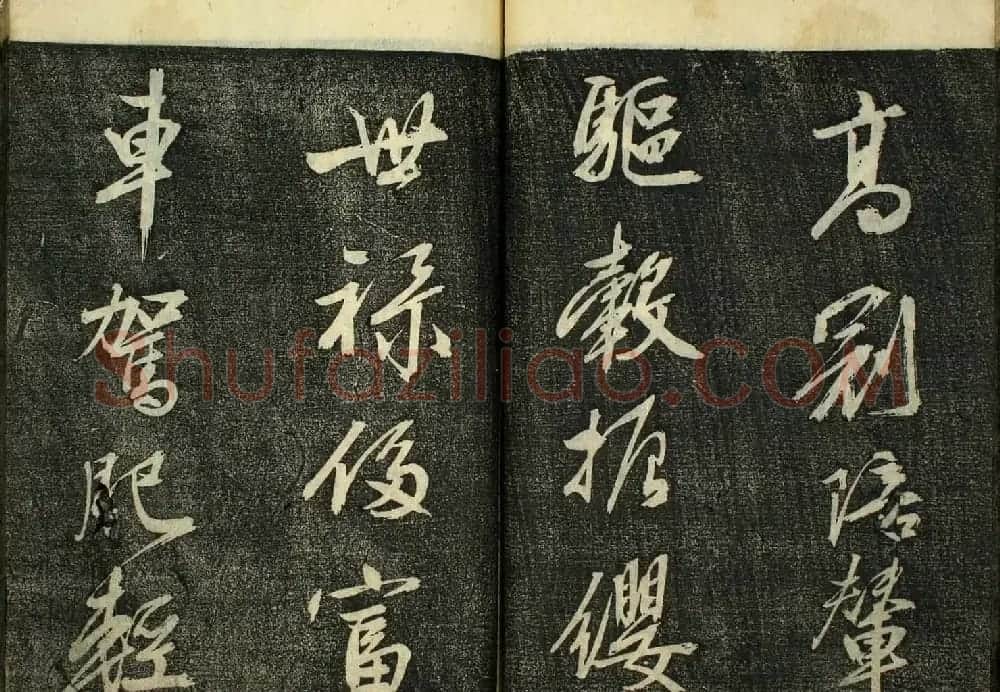 高冠陪輦
驅轂振纓
世禄侈富
車駕肥輕
Shufaziliao.COM